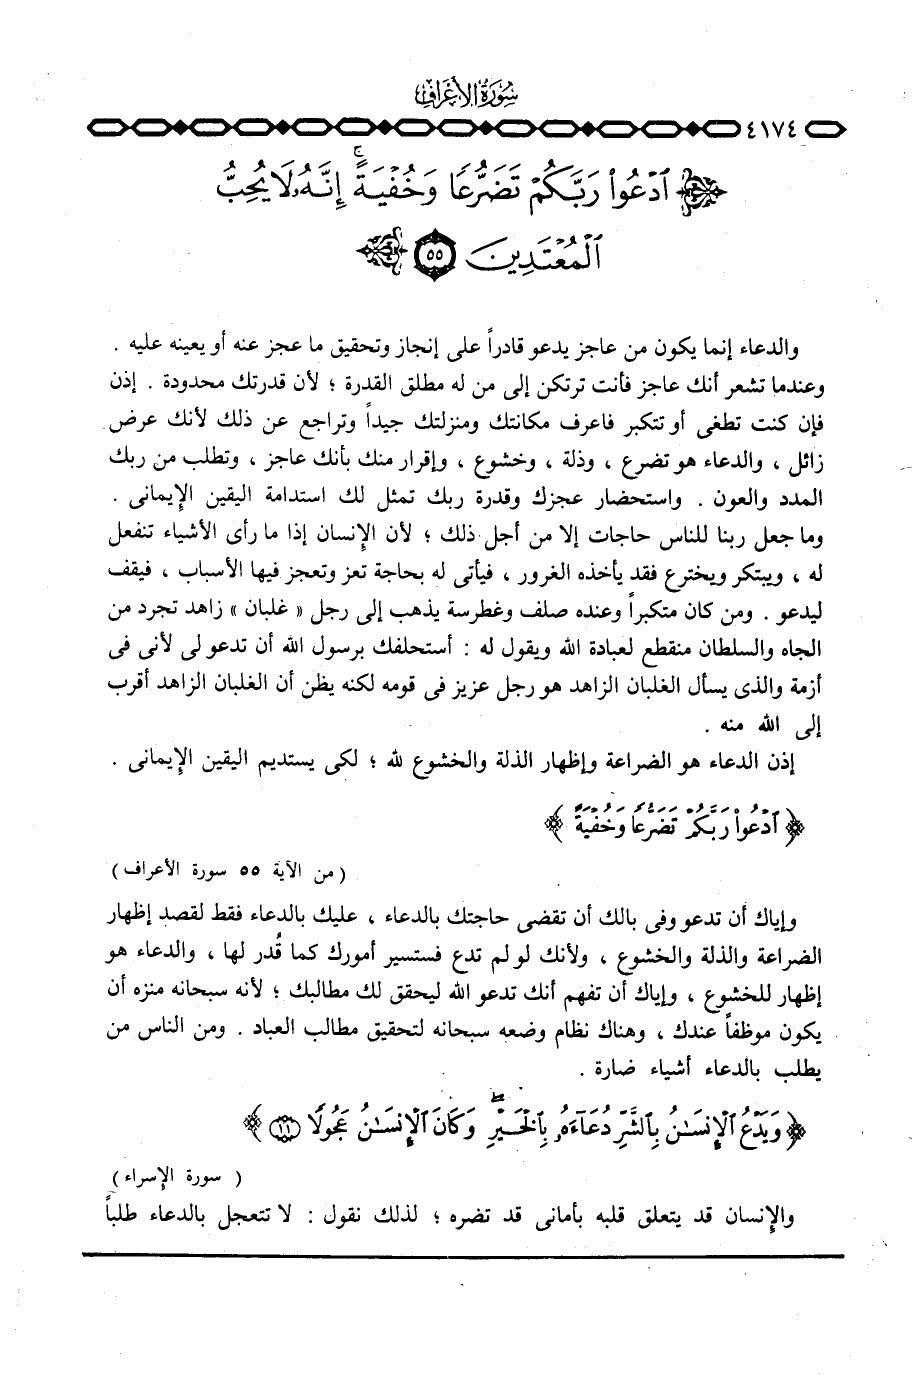 سُورَةُ الأَعْرَافِ
٤١٧٤
﴿ ٱدْعُوا۟ رَبَّكُمْ تَضَرُّعًا وَخُفْيَةً ۚ إِنَّهُۥ لَا يُحِبُّ
ٱلْمُعْتَدِينَ ٥٥ ﴾
والدعاء إنما يكون من عاجز يدعو قادراً على إنجاز وتحقيق ما عجز عنه أو يعينه عليه .
وعندما تشعر أنك عاجز فأنت ترتكن إلى من له مطلق القدرة ؛ لأن قدرتك محدودة . إذن
فإن كنت تطغى أو تتكبر فاعرف مكانتك ومنزلتك جيداً وتراجع عن ذلك لأنك عرض
زائل ، والدعاء هو تضرع ، وذلة ، وخشوع ، وإقرار منك بأنك عاجز ، وتطلب من ربك
المدد والعون . واستحضار عجزك وقدرة ربك تمثل لك استدامة اليقين الإيمانى .
وما جعل ربنا للناس حاجات إلا من أجل ذلك ؛ لأن الإنسان إذا ما رأى الأشياء تنفعل
له ، ويبتكر ويخترع فقد يأخذه الغرور ، فيأتى له بحاجة تعز وتعجز فيها الأسباب ، فيقف
ليدعو . ومن كان متكبراً وعنده صلف وغطرسة يذهب إلى رجل « غلبان » زاهد تجرد من
الجاه والسلطان منقطع لعبادة الله ويقول له : أستحلفك برسول الله أن تدعو لى لأنى فى
أزمة والذى يسأل الغلبان الزاهد هو رجل عزيز فى قومه لكنه يظن أن الغلبان الزاهد أقرب
إلى الله منه .
إذن الدعاء هو الضراعة وإظهار الذلة والخشوع لله ؛ لكى يستديم اليقين الإيمانى .
﴿ ٱدْعُوا۟ رَبَّكُمْ تَضَرُّعًا وَخُفْيَةً ﴾
( من الآية ٥٥ سورة الأعراف )
وإياك أن تدعو وفى بالك أن تقضى حاجتك بالدعاء ، عليك بالدعاء فقط لقصد إظهار
الضراعة والذلة والخشوع ، ولأنك لو لم تدع فستسير أمورك كما قُدر لها ، والدعاء هو
إظهار للخشوع ، وإياك أن تفهم أنك تدعو الله ليحقق لك مطالبك ؛ لأنه سبحانه منزه أن
يكون موظفاً عندك ، وهناك نظام وضعه سبحانه لتحقيق مطالب العباد . ومن الناس من
يطلب بالدعاء أشياء ضارة .
﴿ وَيَدْعُ ٱلْإِنسَـٰنُ بِٱلشَّرِّ دُعَآءَهُۥ بِٱلْخَيْرِ ۖ وَكَانَ ٱلْإِنسَـٰنُ عَجُولًا ١١ ﴾
( سورة الإسراء )
والإنسان قد يتعلق قلبه بأمانى قد تضره ؛ لذلك نقول : لا تتعجل بالدعاء طلباً